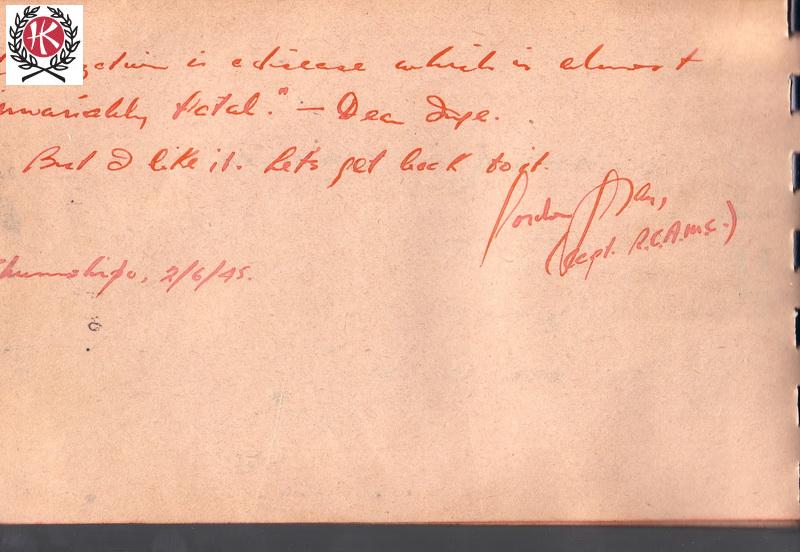 HK
is a disease which is almost
invariably fatal." – Dean Inge.
But I like it. Let's get back to it.
Gordon Gray,
(Capt. R.C.A.M.C.)
2/6/45.